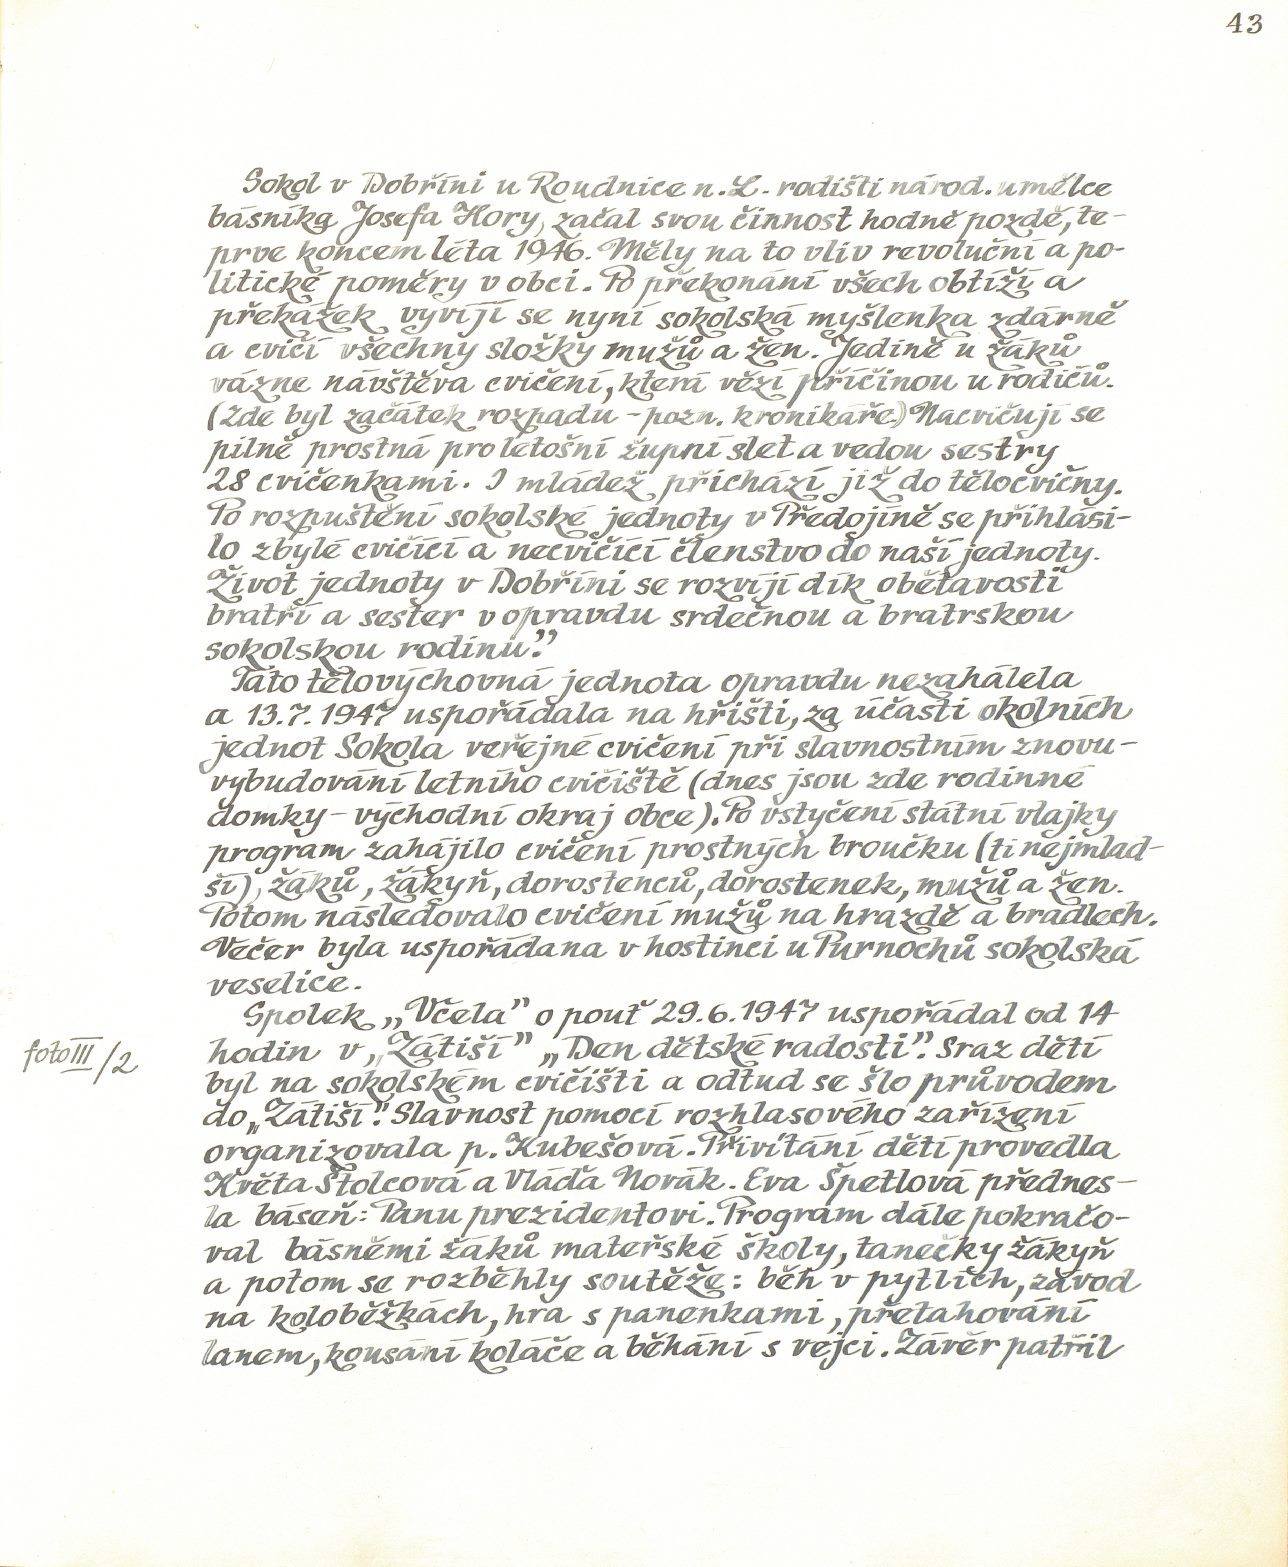 43
Sokol v Dobříni u Roudnice n.L. rodišti národ. umělce
básníka Josefa Hory, začal svou činnost hodně pozdě, te-
prve koncem léta 1946. Měly na to vliv revoluční a po-
litické poměry v obci. Po překonání všech obtíží a
překážek vyvíjí se nyní sokolská myšlenka zdárně
a cvičí všechny složky mužů a žen. Jedině u žáků
vázne návštěva cvičení, která vězí příčinou u rodičů.
(Zde byl začátek rozpadu - pozn. kronikáře.) Nacvičují se
pilně prostná pro letošní župní slet a vedou sestry
28 cvičenkami. I mládež přichází již do tělocvičny.
Po rozpuštění sokolské jednoty v Předojíně se přihlási-
lo zbylé cvičící a necvičící členstvo do naší jednoty.
Život jednoty v Dobříni se rozvíjí dík obětavosti
bratří a sester v opravdu srdečnou a bratrskou
sokolskou rodinu."
Tato tělovýchovná jednota opravdu nezahálela
a 13.7.1947 uspořádala na hřišti, za účasti okolních
jednot Sokola veřejné cvičení při slavnostním znovu-
vybudování letního cvičiště (dnes jsou zde rodinné
domky - východní okraj obce). Po vstyčení státní vlajky
program zahájilo cvičení prostných broučku (ti nejmlad-
ší), žáků, žákyň, dorostenců, dorostenek, mužů a žen.
Potom následovalo cvičení mužů na hrazdě a bradlech.
Večer byla uspořádana v hostinci u Purnochů sokolská
veselice.
Spolek „Včela" o pouť 29.6.1947 uspořádal od 14
foto III/2
hodin v „Zátiší" „Den dětské radosti". Sraz dětí
byl na sokolském cvičišti a odtud se šlo průvodem
do „Zátiší". Slavnost pomocí rozhlasového zařízení
organizovala p. Kubešová. Přivítání dětí provedla
Květa Štolcová a Vláďa Novák. Eva Špetlová přednes-
la báseň: Panu prezidentovi. Program dále pokračo-
val básněmi žáků mateřské školy, tanečky žákyň
a potom se rozběhly soutěže: běh v pytlích, závod
na koloběžkách, hra s panenkami, přetahování
lanem, kousání koláče a běhání s vejci. Závěr patřil